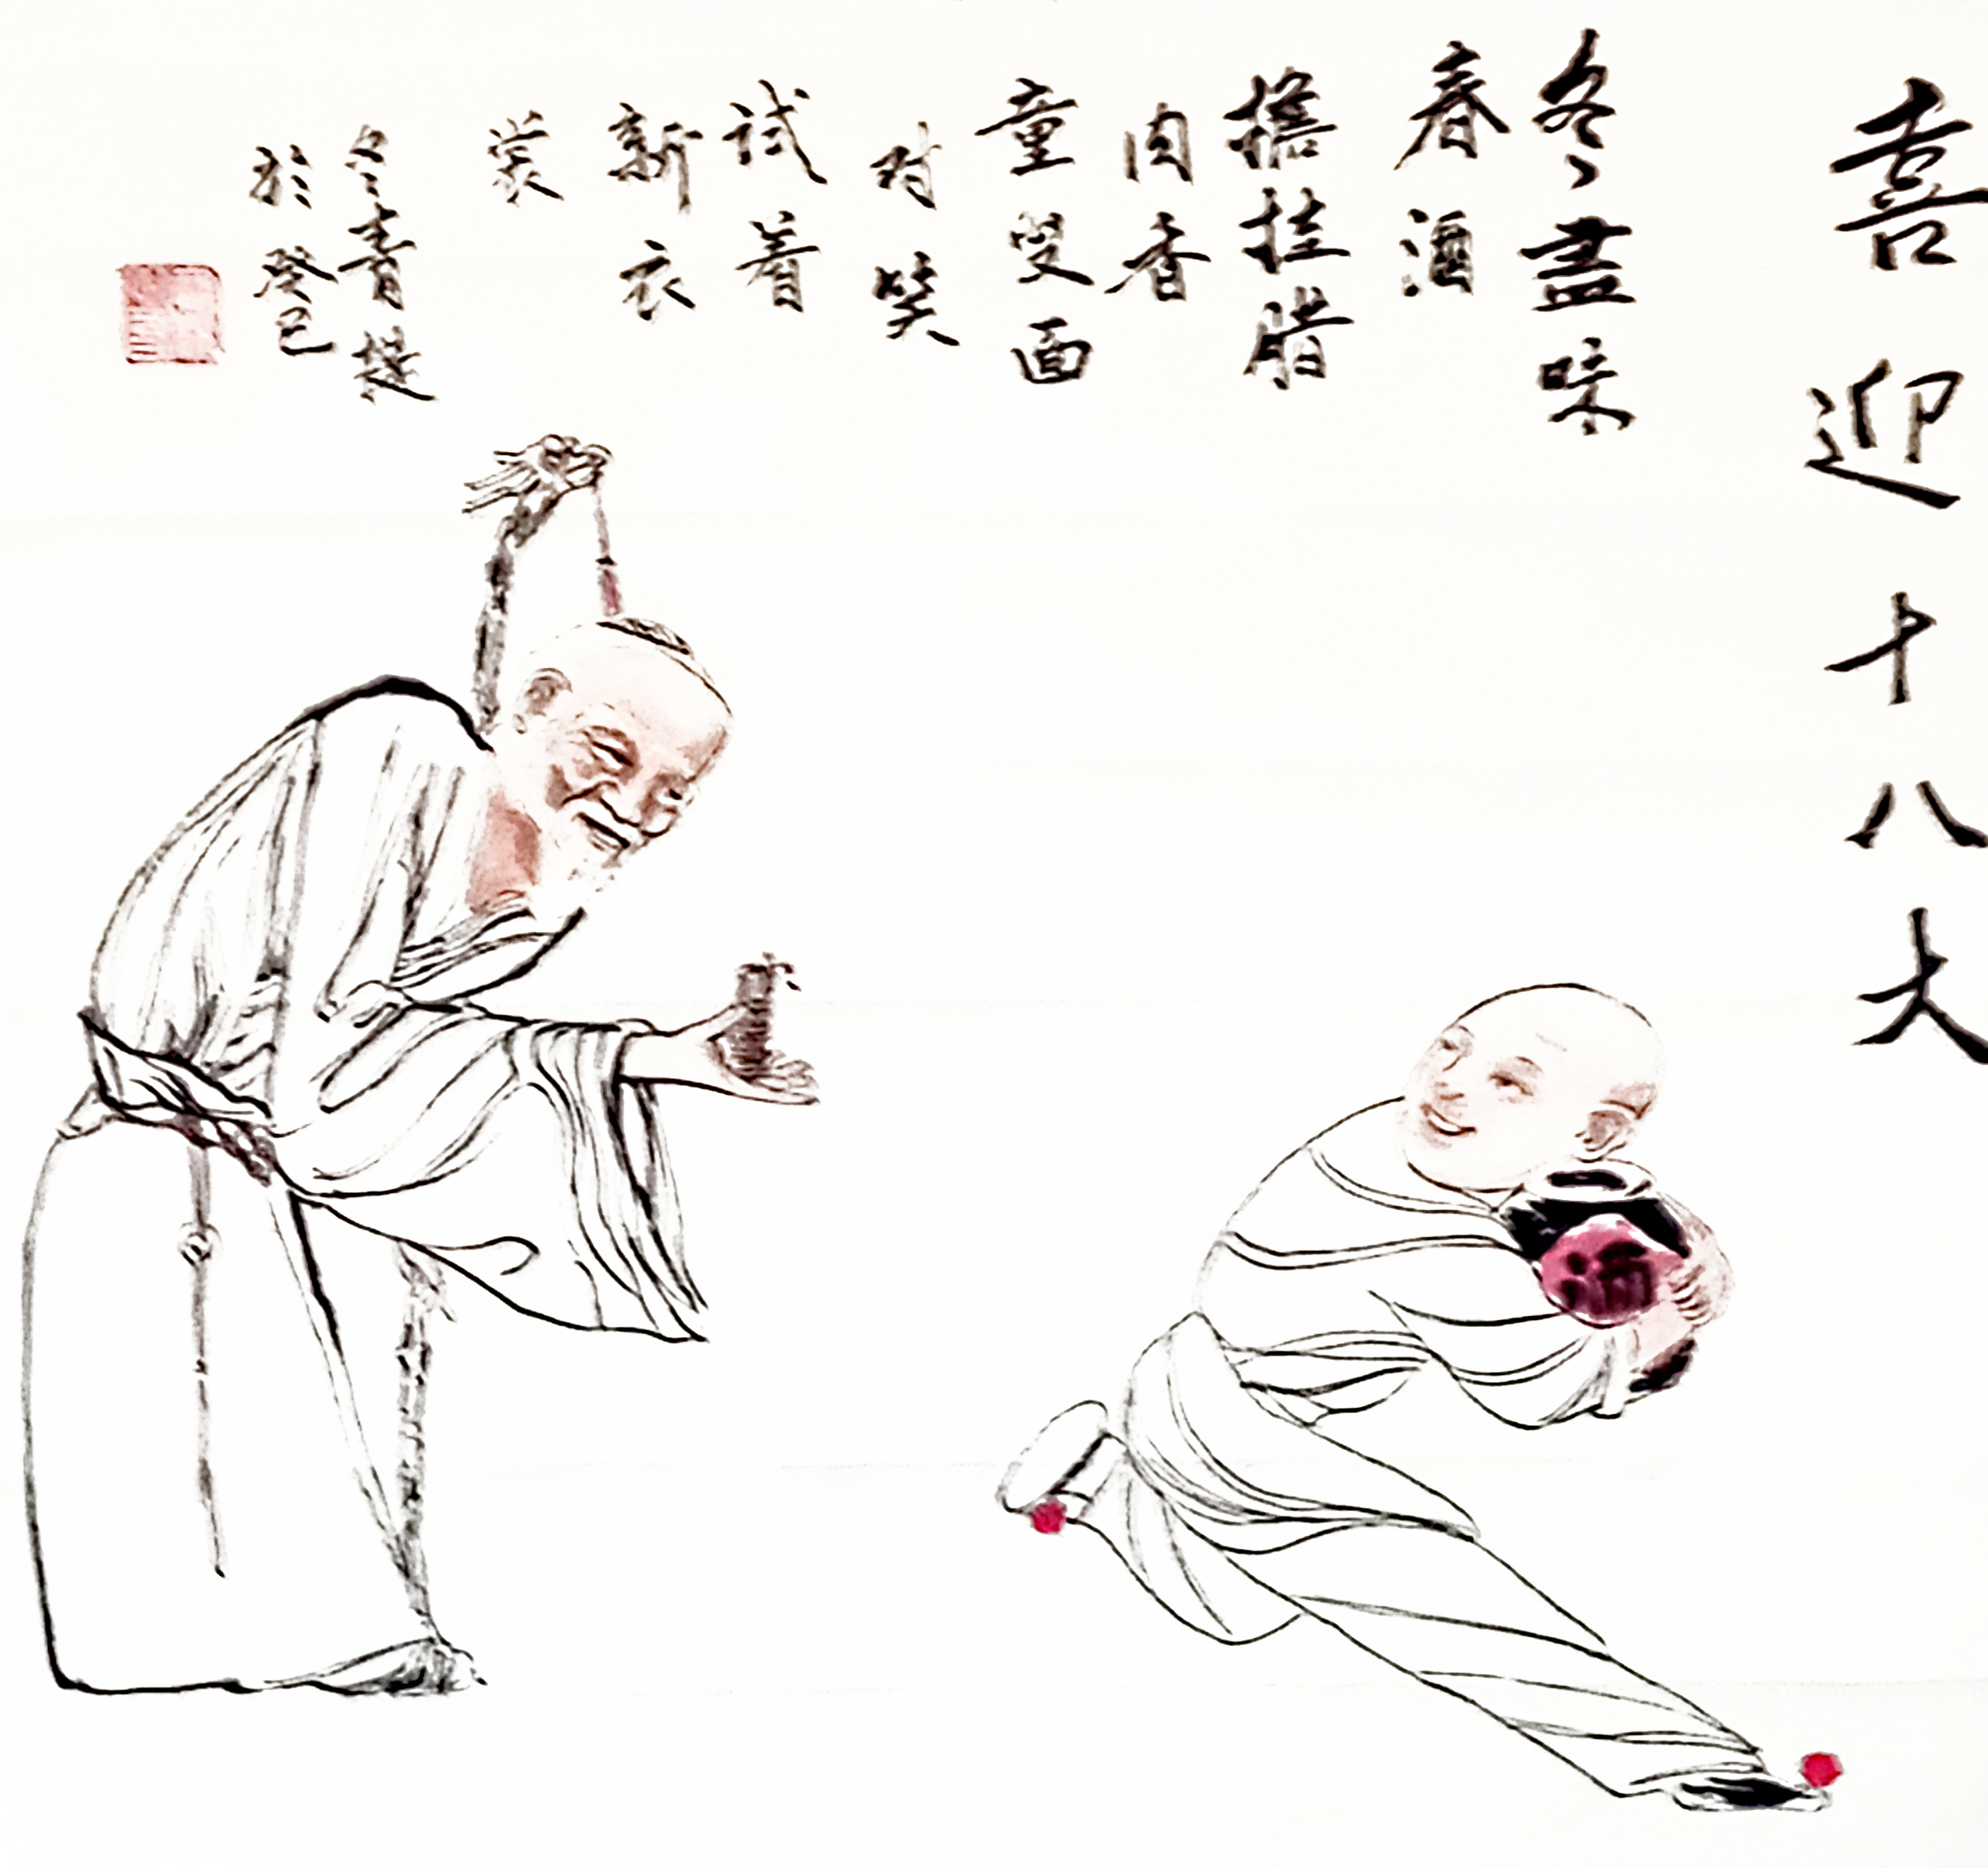 喜迎十八大
冬盡味
春酒
擔挂腊
肉香
童叟面
对笑
试着
新衣
裳
冬青提
於癸巳
酒